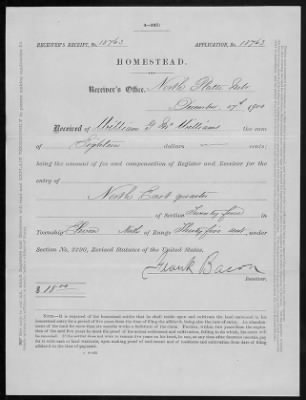 4—137)
RECEIVER'S RECEIPT, No. 18763 APPLICATION, No. 18763
HOMESTEAD.
Receiver's Office, North Platte Neb
December 17th 1900
Received of William G. McWilliams the sum
of Eighteen dollars — cents;
being the amount of fee and compensation of Register and Receiver for the
entry of
North East quarter
of Section Twenty four in
Township Eleven North of Range Thirty five west, under
Section No. 2290, Revised Statutes of the United States.
Frank Bacon
Receiver.
$ 18.00
NOTE.—It is required of the homestead settler that he shall reside upon and cultivate the land embraced in his
homestead entry for a period of five years from the date of filing his affidavit, being also the date of entry. An abandon-
ment of the land for more than six months works a forfeiture of the claim. Further, within two years from the expira-
tion of the said five years he must file proof of his actual settlement and cultivation, failing to do which, his entry will
be canceled. If the settler does not wish to remain five years on his tract, he can, at any time after fourteen months, pay
for it with cash or land-warrants, upon making proof of settlement and of residence and cultivation from date of filing
affidavit to the time of payment.